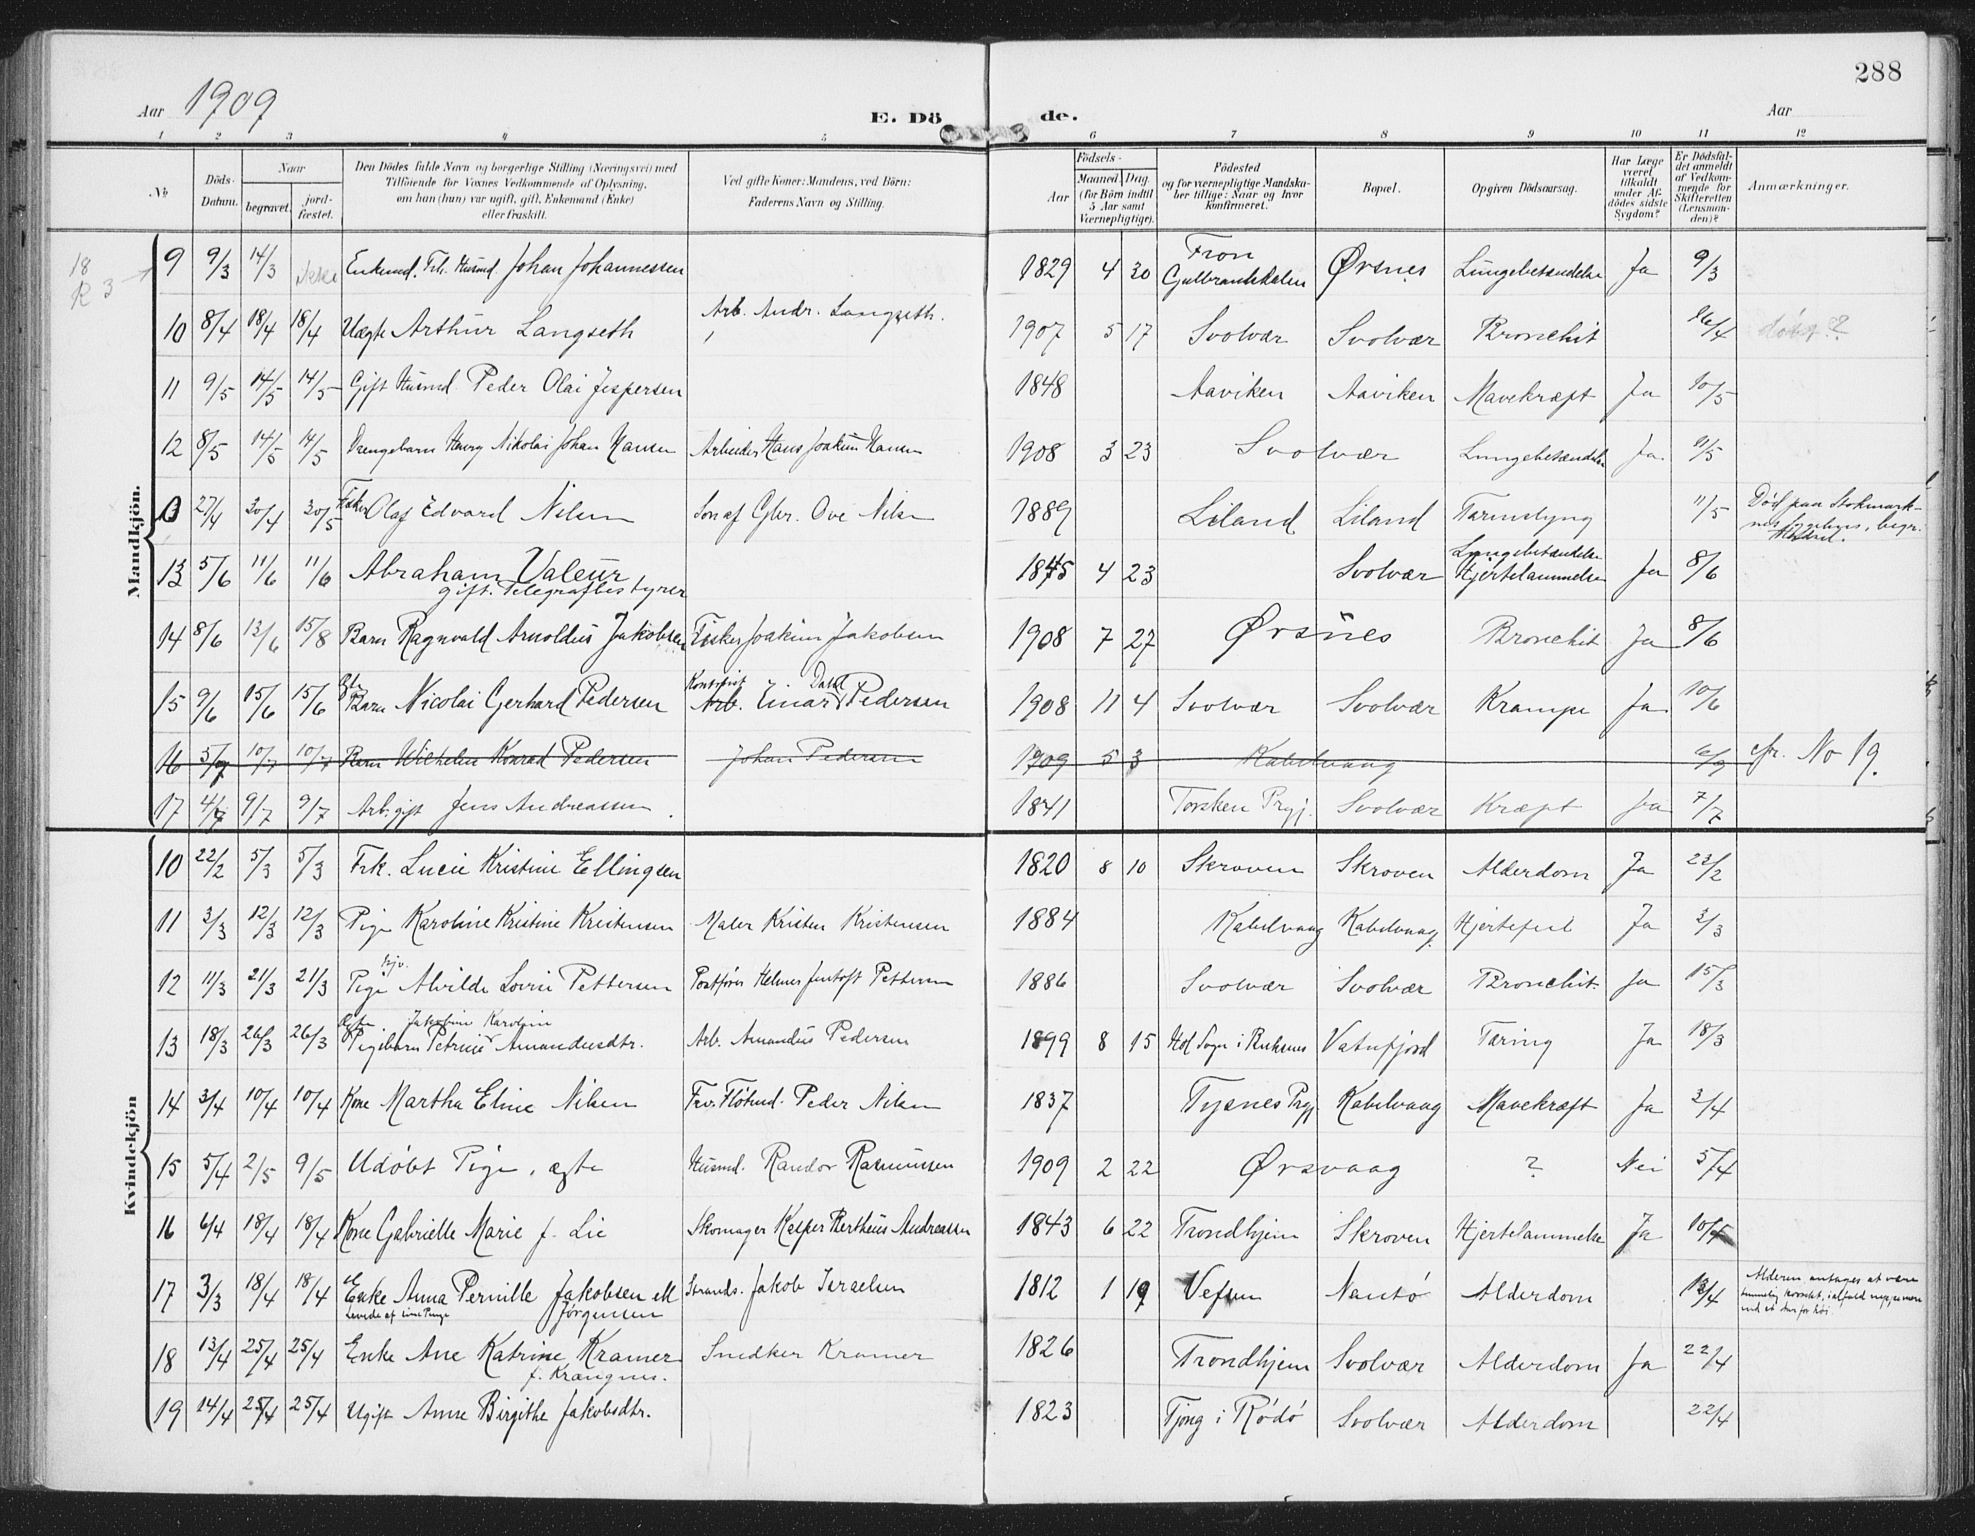 288
Aar 1909
E. Dö de.
Aar
1 2 3 4 5 6 7 8 9 10 11 12
No
Döds-Datum.
Naar
begravet.
jord-fæstet.
Den Dödes fulde Navn og borgerlige Stilling (Næringsvei) med
Tilföiende for Voxnes Vedkommende af Oplysning,
om han (hun) var ugift, gift, Enkemand (Enke)
eller fraskilt.
Ved gifte Koner: Mandens, ved Börn:
Faderens Navn og Stilling.
Födsels-
Aar
Maaned. Dag.
(for Börn indtil
5 Aar samt
Værnepligtige).
Födested
og for værnepligtige Mandska-
ber tillige: Naar og hvor
konfirmeret.
Bopæl.
Opgiven Dödsaarsag.
Har Læge
været
tilkaldt
under Af-
dödes sidste
Sygdom?
Er Dödsfal-
det anmeldt
af Vedkom-
mende for
Skifteretten
(Lensman-
den)?
Anmærkninger.
Mandkjön.
18
K 3
9 9/3 14/3 Ikke Enkemd. Fh. Husmd. Johan Johannessen 1829 4 30 Fron Gulbrandsdalen Ørsnes Lungebetændelse Ja 9/3
10 8/4 18/4 18/4 Uægte Arthur Langseth Arb. Andr. Langseth. 1907 5 17 Svolvær Svolvær Bronchit 26/4 døbt?
11 9/5 14/5 14/5 Gift Husmd Peder Olai Jespersen 1848 Aaviken Aaviken Mavekræft Ja 10/5
12 8/5 14/5 14/5 Drengebarn Henry Nikolai Johan Hansen Arbeider Hans Joakim Hansen 1908 3 23 Svolvær Lungebetændelse Ja 9/5
27/4 30/4 30/5 Fisker Olaf Edvard Nilsen Søn af Gbr. Ove Nilsen 1889 Liland Liland Tarmslyng 11/5 Død paa Stokmark-
nes Sygehus, begr.
13 5/6 11/6 11/6 Abraham Valeur
gift. Telegrafbestyrer 1845 4 23 Svolvær Lungebetændelse
Hjertelammelse Ja 8/6
14 8/6 13/6 15/8 Barn Ragnvald Arnoldus Jakobsen Fisker Joakim Jakobsen 1908 7 27 Ørsnes Bronchit Ja 8/6
15 9/6 15/6 15/6 Barn Nicolai Gerhard Pedersen Kontorist Arb. Einar Dahl Pedersen 1908 11 4 Svolvær Svolvær Krampe Ja 10/6
16 5/7 10/7 10/7 Barn Wilhelm Konrad Pedersen Johan Pedersen 1909 5 3 Kabelvaag 6/9 cfr. No 19.
17 4/7 9/7 9/7 Arb. gift Jens Andreassen 1841 Torsken Prgj. Svolvær Kræft Ja 7/7
Kvindekjön
10 22/2 5/3 5/3 Frk. Lucie Kristine Ellingsen 1820 8 10 Skroven Skroven Alderdom Ja 23/2
11 3/3 12/3 12/3 Pige Karoline Kristine Kristensen Maler Kristen Kristensen 1884 Kabelvaag Kabelvaag. Hjertefeil Ja 3/3
12 11/3 21/3 21/3 Pige Alvilde Lovise Pettersen Postfører Helmer Jentoft Pettersen 1886 Svolvær Svolvær Bronchit. Ja 15/3
13 18/3 26/3 26/3 Ægte. Jakobine Karoline
Pigebarn Petrine Amandusdtr. Arb. Amandus Pedersen 1899 8 15 Hol Sogn i Buksnes Vatnfjord Tæring Ja 18/3
14 3/4 10/4 10/4 Kone Martha Eline Nilsen Frv. Flötmd. Peder Nilsen 1837 Tysnes Prgj Kabelvaag Mavekræft Ja 3/4
15 5/4 2/5 9/5 Udøbt Pige, ægte Husmd. Randor Rasmussen 1909 2 22 Ørsvaag ? Nei 5/4
16 6/4 18/4 18/4 Kone Gabrielle Marie f. Lie Skomager Kasper Bertheus Andreassen 1843 6 22 Trondhjem Skroven Hjertelammelse Ja 10/4
17 3/3 18/4 18/4 Enke Anna Pernille Jakobsen ell
Levede af sine Penge Jörgensen Strands. Jakob Israelsen 1812 1 19 Vefsen Nautö Alderdom 13/4 Alderen antages at være
temmelig korrekt, ialfald neppe mere
end et Aar for høi.
18 13/4 25/4 25/4 Enke Ane Katrine Kramer
f. Krangnes. Snedker Kramer 1826 Trondhjem Svolvær Alderdom Ja 22/4
19 14/4 25/4 25/4 Ugift Anne Birgithe Jakobsdtr. 1823 Tjong i Rødø Svolvær Alderdom 22/4